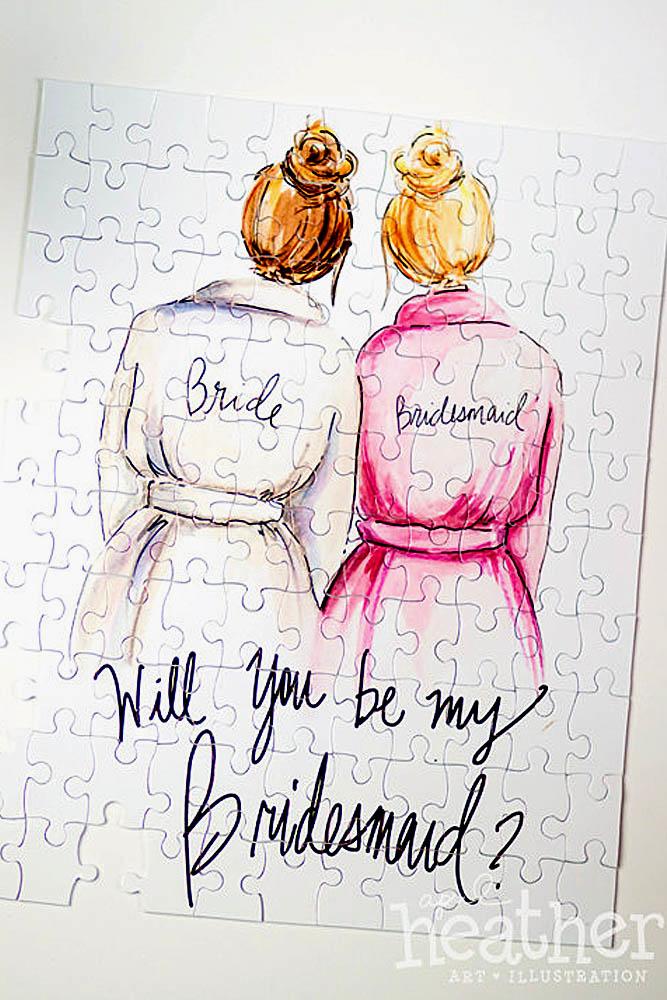 Bride
Bridesmaid
Will you be my
Bridesmaid?
april
heather
ART ♥ ILLUSTRATION